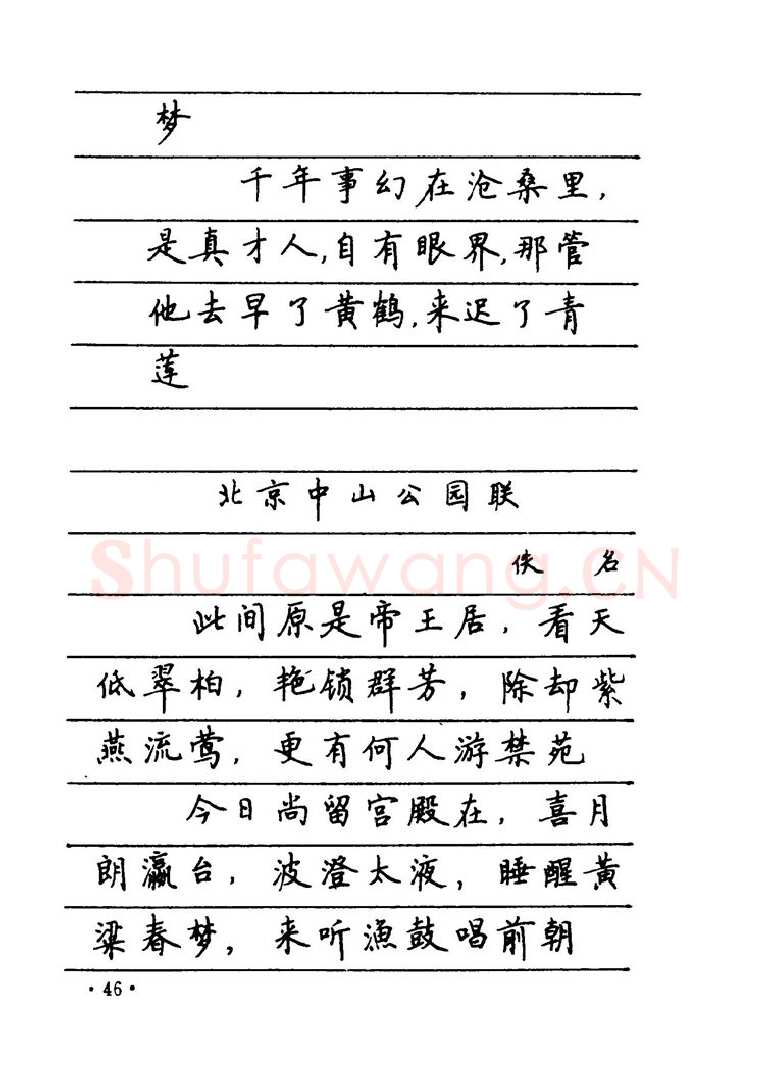 梦
千年事幻在沧桑里,
是真才人,自有眼界,那管
他去早了黄鹤,来迟了青
莲
北京中山公园联
佚 名
Shufawang.CN
此间原是帝王居,看天
低翠柏,艳锁群芳,除却紫
燕流莺,更有何人游禁苑
今日尚留宫殿在,喜月
朗瀛台,波澄太液,睡醒黄
粱春梦,来听渔鼓唱前朝
·46·